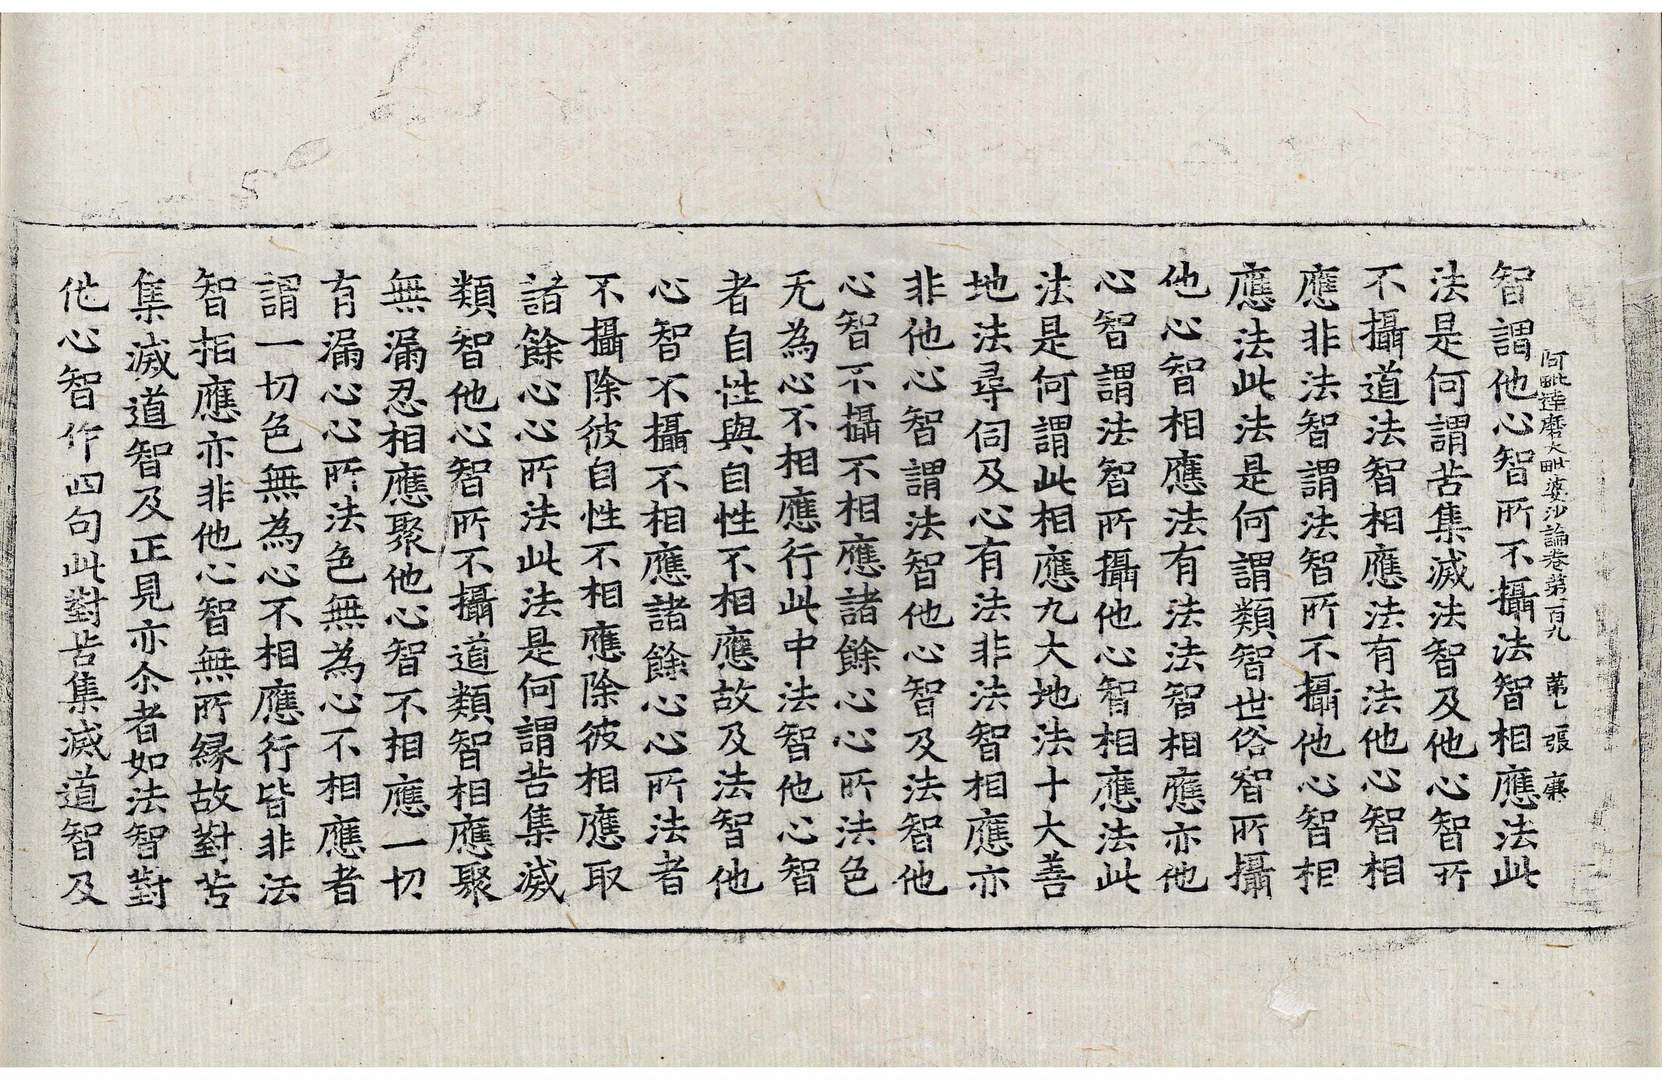 阿毗達磨大毗婆沙論卷第一百九　第七張　廉
智謂他心智所不攝法智相應法此
法是何謂苦集滅法智及他心智所
不攝道法智相應法有法他心智相
應非法智謂法智所不攝他心智相
應法此法是何謂類智世俗智所攝
他心智相應法有法法智相應亦他
心智謂法智所攝他心智相應法此
法是何謂此相應九大地法十大善
地法尋伺及心有法非法智相應亦
非他心智謂法智他心智及法智他
心智不攝不相應諸餘心心所法色
无為心不相應行此中法智他心智
者自性與自性不相應故及法智他
心智不攝不相應諸餘心心所法者
不攝除彼自性不相應除彼相應取
諸餘心心所法此法是何謂苦集滅
類智他心智所不攝道類智相應聚
無漏忍相應聚他心智不相應一切
有漏心心所法色無為心不相應者
謂一切色無為心不相應行皆非法
智相應亦非他心智無所緣故對苦
集滅道智及正見亦尒者如法智對
他心智作四句此對苦集滅道智及